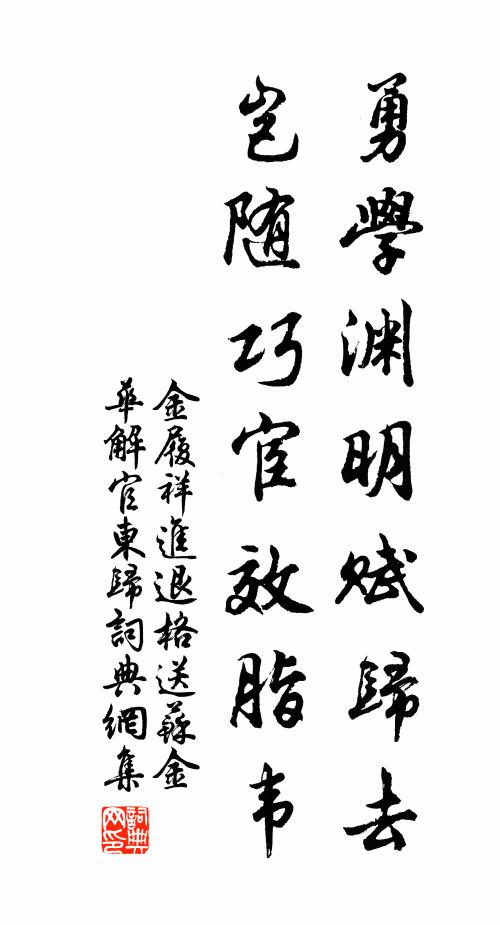 勇學渊明赋歸去
岂随巧宦效脂韦
金履祥進退格送蘇金
華解官東歸詞典網集
詞典
网印